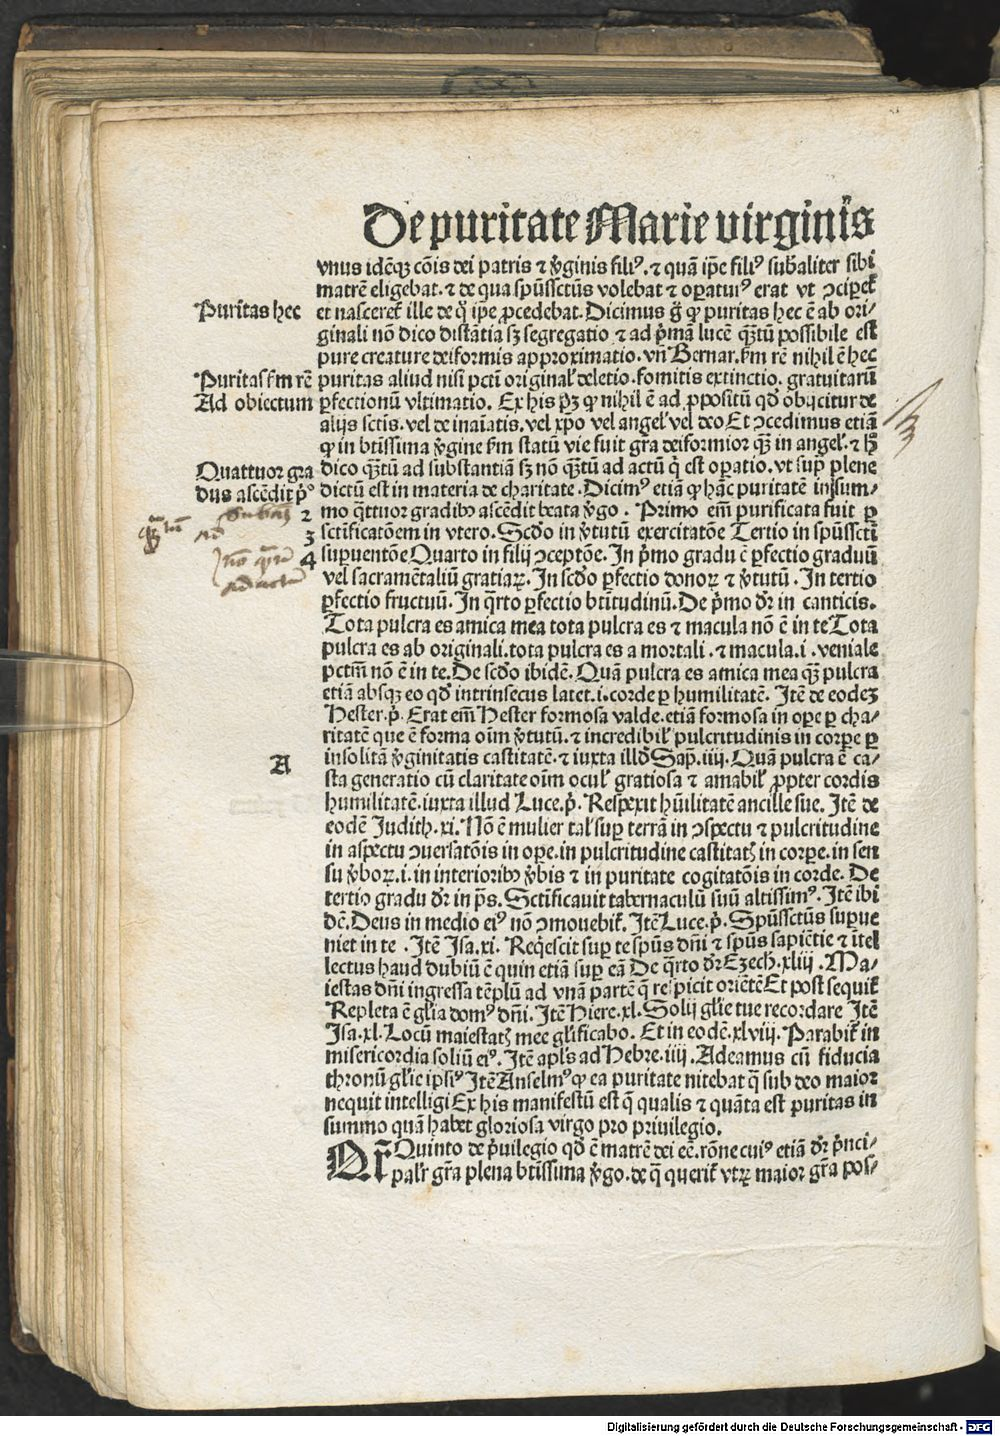 De puritate Marie virginis
vnus idēqꝫ cōis dei patris ⁊ v̓ginis filiꝰ. ⁊ quā ip̄e filiꝰ sub̄aliter sibi
matrē eligebat. ⁊ de qua spūssctūs volebat ⁊ oꝑatuꝰ erat vt ↄciꝑet᷑
Puritas hec
et nasceret᷑ ille de q̊ ip̄e ꝓcedebat. Dicimus g̊ ꝙ puritas hec ē ab ori⸗
ginali nō dico distātia sꝫ segregatio ⁊ ad p̓mā lucē qꝫtū possibile est
pure creature deiformis approximatio. vn̄ Bernar. ẜm rē nihil ē hec
Puritas ẜm rē
puritas aliud nisi pctī original̓ deletio. fomitis extinctio. gratuitarū
Ad obiectum
ꝑfectionū vltimatio. Ex his pꝫ ꝙ nihil ē ad ꝓpositū qd̓ obijcitur de
alijs sctīs. vel de inaīatis. vel xp̄o vel angel̓ vel deo Et ↄcedimus etiā
ꝙ in btīssima v̓gine ẜm statū vie fuit gr̄a deiformior qꝫ̄ in angel̓. ⁊ h̊
Quattuor gra
dico qꝫ̄tū ad substantiā sꝫ nō qꝫ̄tū ad actū q̓ est oꝑatio. vt suꝑ plene
dus ascēdit p̓º
dictū est in materia de charitate. Dicimꝰ etiā ꝙ hāc puritatē in sum⸗
2
mo q̄ttuor gradibꝰ ascēdit beata v̓go. Primo em̄ purificata fuit ꝑ
3
sctīficatōem in vtero. Scd̓o in v̓tutū exercitatōe Tertio in spūssctī
4
suꝑuentōe Quarto in filij ↄceptōe. In p̓mo gradu ē ꝑfectio graduū
vel sacramētaliū gratiaꝝ. In scd̓o ꝑfectio donoꝝ ⁊ v̓tutū. In tertio
ꝑfectio fructuū. In q̄rto ꝑfectio btītudinū. De p̓mo dr̄ in canticis.
Tota pulcra es amica mea tota pulcra es ⁊ macula nō ē in te Tota
pulcra es ab originali. tota pulcra es a mortali. ⁊ macula. i. veniale
pctm̄ nō ē in te. De scd̓o ibidē. Quā pulcra es amica mea qꝫ̄ pulcra
etiā absqꝫ eo qd̓ intrinsecus latet. i. corde ꝑ humilitatē. Itē de eodeꝫ
Hester. p̓. Erat em̄ Hester formosa valde. etiā formosa in oꝑe ꝑ cha⸗
ritatē que ē forma oīm v̓tutū. ⁊ incredibil̓ pulcritudinis in corꝑe ꝑ
A
insolitā v̓ginitatis castitatē. ⁊ iuxta illd̓ Sap̄. iiij. Quā pulcra ē ca⸗
sta generatio cū claritate oīm ocul̓ gratiosa ⁊ amabil̓ ꝓpter cordis
humilitatē. iuxta illud Luce. p̓. Respexit hūilitatē ancille sue. Itē de
eodē Judith. xi. Nō ē mulier tal̓ suꝑ terrā in ↄspectu ⁊ pulcritudine
in aspectu ↄuersatōis in oꝑe. in pulcritudine castitatꝭ in corꝑe. in sen
su v̓boꝝ. i. in interioribꝰ v̓bis ⁊ in puritate cogitatōis in corde. De
tertio gradu dr̄ in p̄s. Sctīficauit tabernaculū suū altissimꝰ. Itē ibi
dē. Deus in medio eiꝰ nō ↄmouebit᷑. Itē Luce. p̓. Spūssctūs suꝑue
niet in te. Itē Isa. xi. Req̓escit suꝑ te spūs dn̄i ⁊ spūs sapiētie ⁊ ītel
lectus haud dubiū ē quin etiā suꝑ eā De q̄rto dr̄ Ezech. xliij. Ma⸗
iestas dn̄i ingressa tēplū ad vnā partē q̄ respicit oriētē Et post sequit᷑
Repleta ē gl̄ia domꝰ dn̄i. Itē Hiere. xl. Solij gl̄ie tue recordare Itē
Isa. xl. Locū maiestatꝭ mee gl̄ificabo. Et in eodē. xlviij. Parabit᷑ in
misericordia soliū eiꝰ. Itē apl̄s ad Hebre. iiij. Adeamus cū fiducia
thronū gl̄ie ipsiꝰ Itē Anselmꝰ ꝙ ea puritate nitebat q̄ sub deo maior
nequit intelligi Ex his manifestū est q̄ qualis ⁊ quāta est puritas in
summo quā habet gloriosa virgo pro priuilegio.
Qr̄ Quinto de p̓uilegio qd̓ ē matrē dei eē. rōne cuiꝰ etiā dr̄ p̓nci⸗
pal̓r gr̄a plena btīssima v̓go. de q̄ querit᷑ vtꝝ maior gr̄a pos⸗
Digitalisierung gefördert durch die Deutsche Forschungsgemeinschaft - DFG